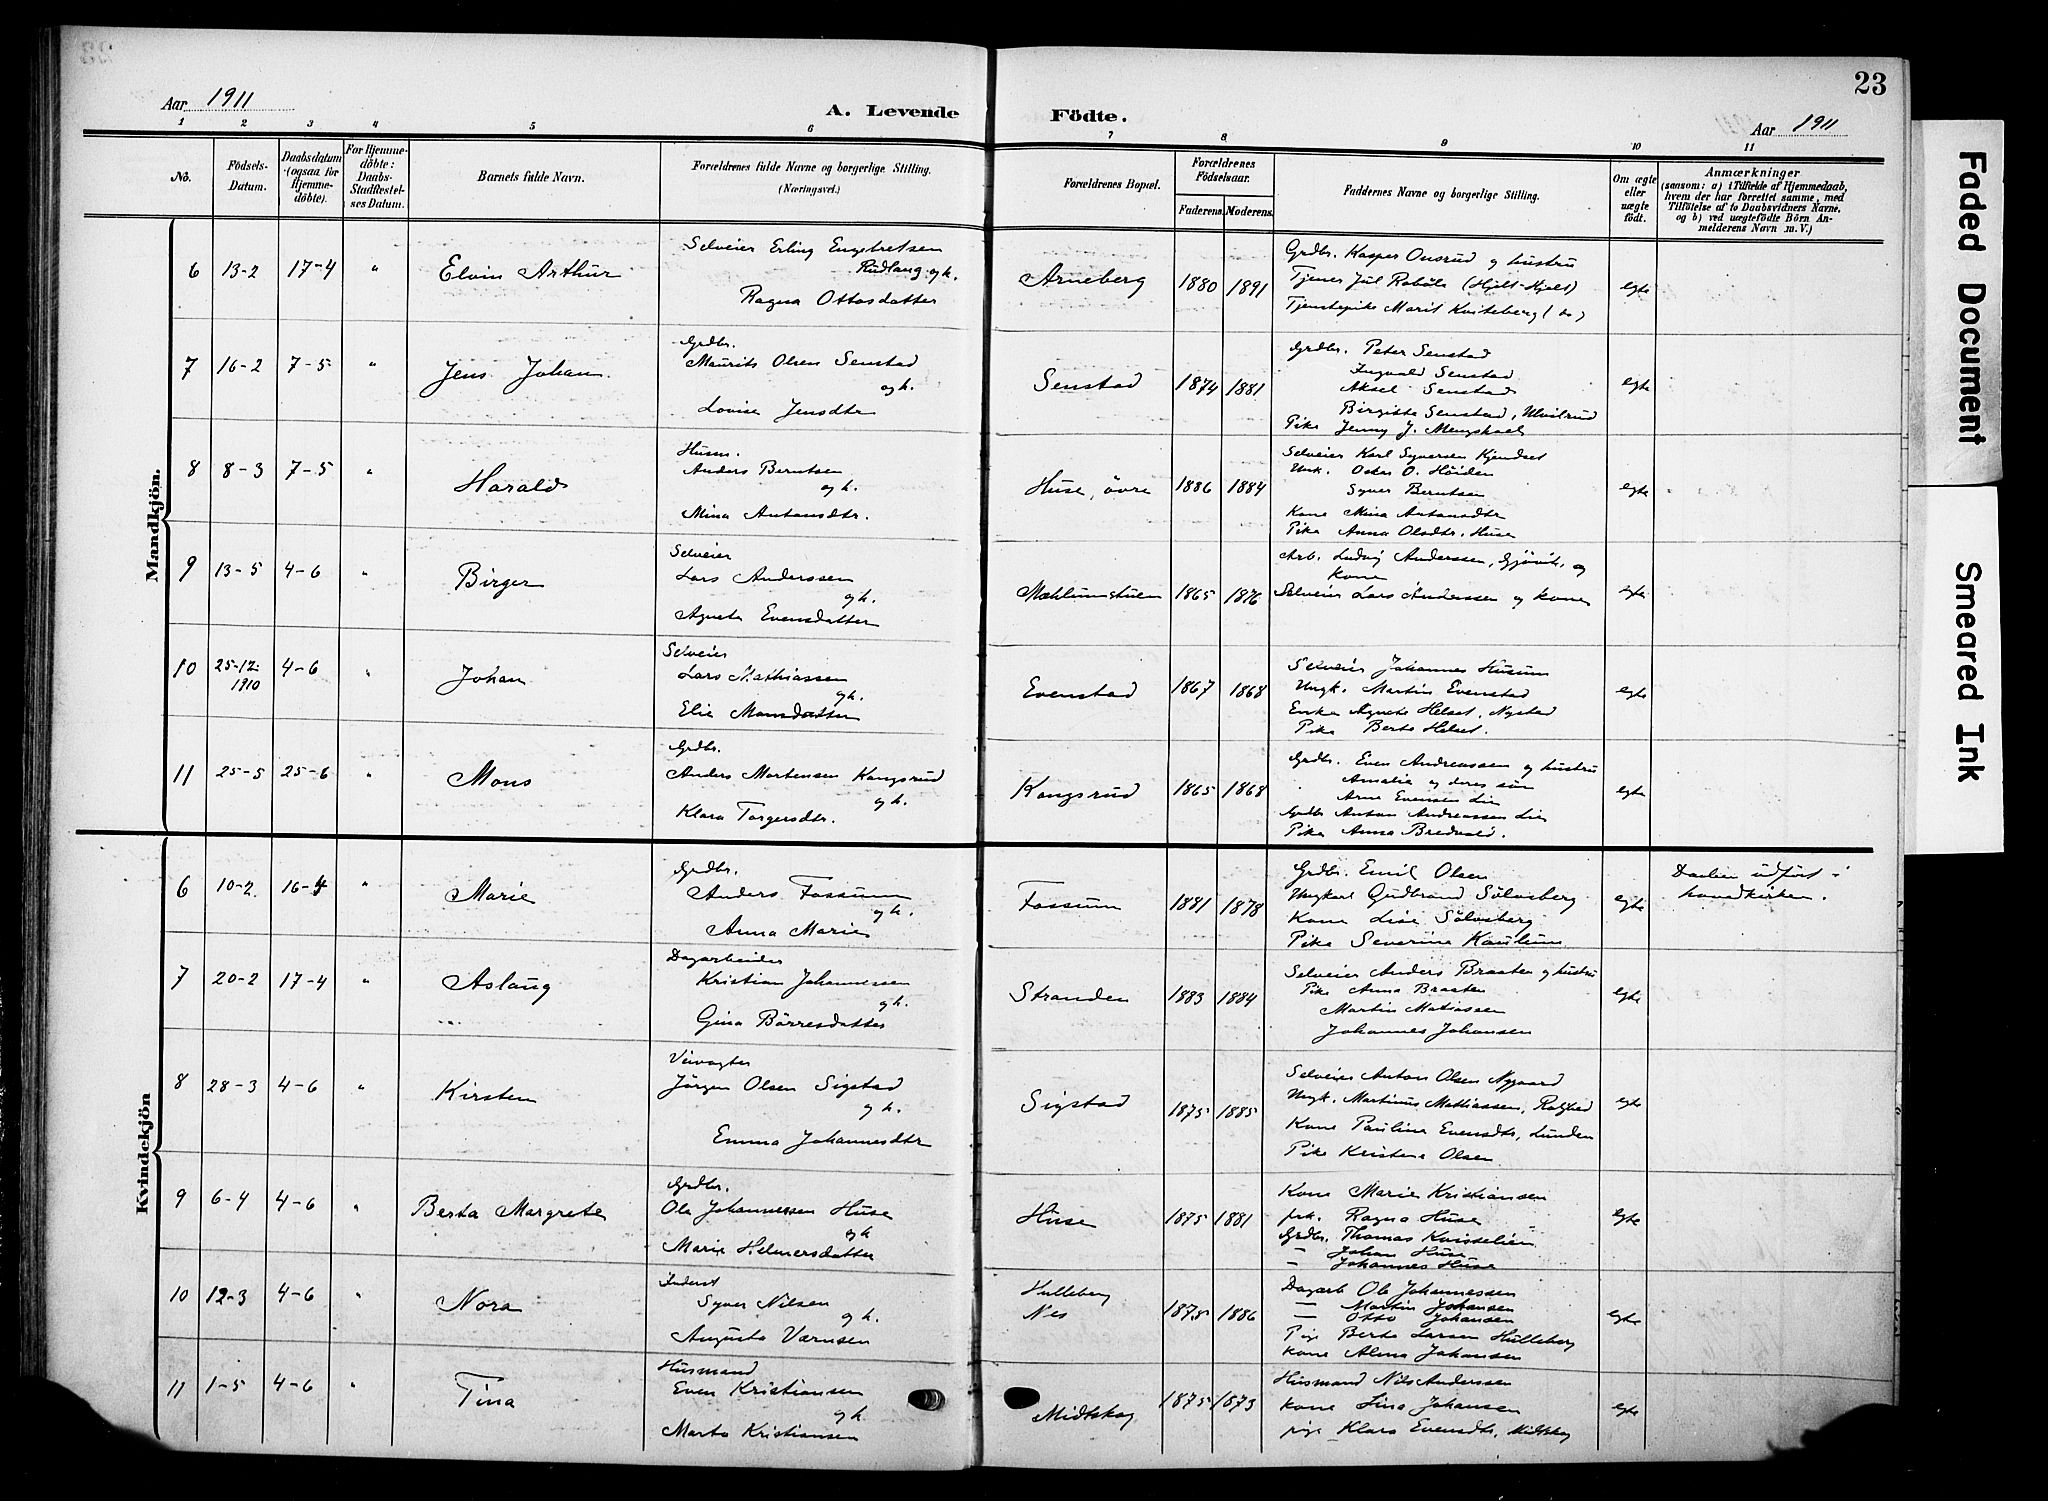 23
Aar 1911
A. Levende Födte.
Aar 1911
1 2 3 4 5 6 7 8 9 10 11
No.
Födsels-
Datum.
Daabsdatum
(ogsaa for
Hjemme-
döbte).
For Hjemme-
döbte:
Daabs-
Stadfæstel-
ses Datum.
Barnets fulde Navn.
Forældrenes fulde Navne og borgerlige Stilling.
(Næringsvei.)
Forældrenes Bopæl.
Forældrenes
Födselsaar.
Faderens. Moderens.
Faddernes Navne og borgerlige Stilling.
Om ægte
eller
uægte
födt.
Anmærkninger
(saasom: a) i Tilfælde af Hjemmedaab,
hvem der har forrettet samme, med
Tilföielse af to Daabsvidners Navne,
og b) ved uægtefödte Börn An-
melderens Navn m. V.)
Mandkjön.
6 13-2 17-4 " Elvin Arthur
Selveier Erling Engebretsen
Rudlang og h.
Ragna Ottosdatter
Arneberg 1880 1891
Grdbr. Kasper Onsrud og hustru
Tjener Jul
Marit Kviteberg (do)
egte
7 16-2 7-5 " Jens Johan
Grdbr.
Maurits Olsen Senstad
og h.
Lovise Jensdtr
Senstad 1874 1881
Grdbr. Peter Senstad
Ingvald Senstad
Aksel Senstad
Birgitte Senstad, Ulvilrud
Pike Jenny J. Mengskoel
egte
8 8-3 7-5 " Harald
Husm.
Anders Berntsen
og h.
Mina Antonsdtr.
Huse, övre 1886 1884
Selveier Karl Syversen Kjendset
Ungk. Oskar O. Höiden
Syver Berntsen
Kone Mina Antonsdtr
Pike Anna Olsdtr. Huse
egte
9 13-5 4-6 " Birger
Selveier
Lars Anderssen
og h.
Agneta Evensdatter
Mæhlumstuen 1865 1876
Arb. Ludvig Anderssen, Gjövik, og
kone
Selveier Lars Anderssen og kone
egte
10 25-12 1910 4-6 " Johan
Selveier
Lars Mathiassen
og h.
Elie Monsdatter
Evenstad 1867 1868
Selveier Johannes Husum
Ungk. Martin Evenstad
Enke Agnete Helset, Nystad
Pike Berte Helset.
egte
11 25-5 25-6 " Mons
Grdbr.
Anders Mortensen Kongsrud
og h.
Klara Torgersdtr.
Kongsrud 1865 1868
Grdbr. Even Andreassen og hustru
Amalie og deres sön
Arne Evensen Lie
Grdbr Anton Andreassen Lie
Pike Anna Bredvold.
egte
Kvindekjön
6 10-2 16-4 " Marie
Grdbr.
Anders Fossum
og h.
Anna Marie
Fossum 1881 1878
Grdbr. Emil Olsen
Ungkarl Gudbrand Sölvsberg
Kone Lise Sölvsberg
Pike Severine Kaulum
egte
Daaben udfört i
hovedkirken.
7 20-2 17-4 " Aslaug
Dagarbeider
Kristian Johannessen
og h.
Gina Börresdatter
Stranden 1883 1884
Selveier Anders Braaten og hustru
Pike Anna Braaten
Martin Matiassen
Johannes Johansen
egte
8 28-3 4-6 " Kirsten
Veivogter
Jörgen Olsen Sigstad
og h.
Emma Johannesdtr
Sigstad 1875 1885
Selveier Anton Olsen Nygaard
Ungk. Martinus Mathiassen,
Kone Pauline Evensdtr, Lunden
Pike Kristene Olsen
egte
9 6-4 4-6 " Berta Margrete
Grdbr.
Ole Johannessen Huse
og h
Marie Helmersdatter
Huse 1875 1881
Kone Marie Kristiansen
frk. Ragna Huse
Grdbr. Thomas Kvisselien
— Johan Huse
— Johannes Huse
egte
10 12-3 4-6 " Nora
Inderst
Syver Nilsen
og h.
Augusta Varnsen
Hulleberg
Nes 1875 1886
Dagarb Ole Johannessen
— Martin Johansen
— Otto Johansen
Pige Berte Larsen Hulleberg
Kone Alma Johansen
egte
11 1-5 4-6 " Tina
Husmand
Even Kristiansen
og h.
Marta Kristiansen
Midtskog 1875 1873
Husmand Nils Anderssen
Kone Lina Johansen
pige Klara Evensdtr, Midtskog
egte
Faded Document
Smeared Ink